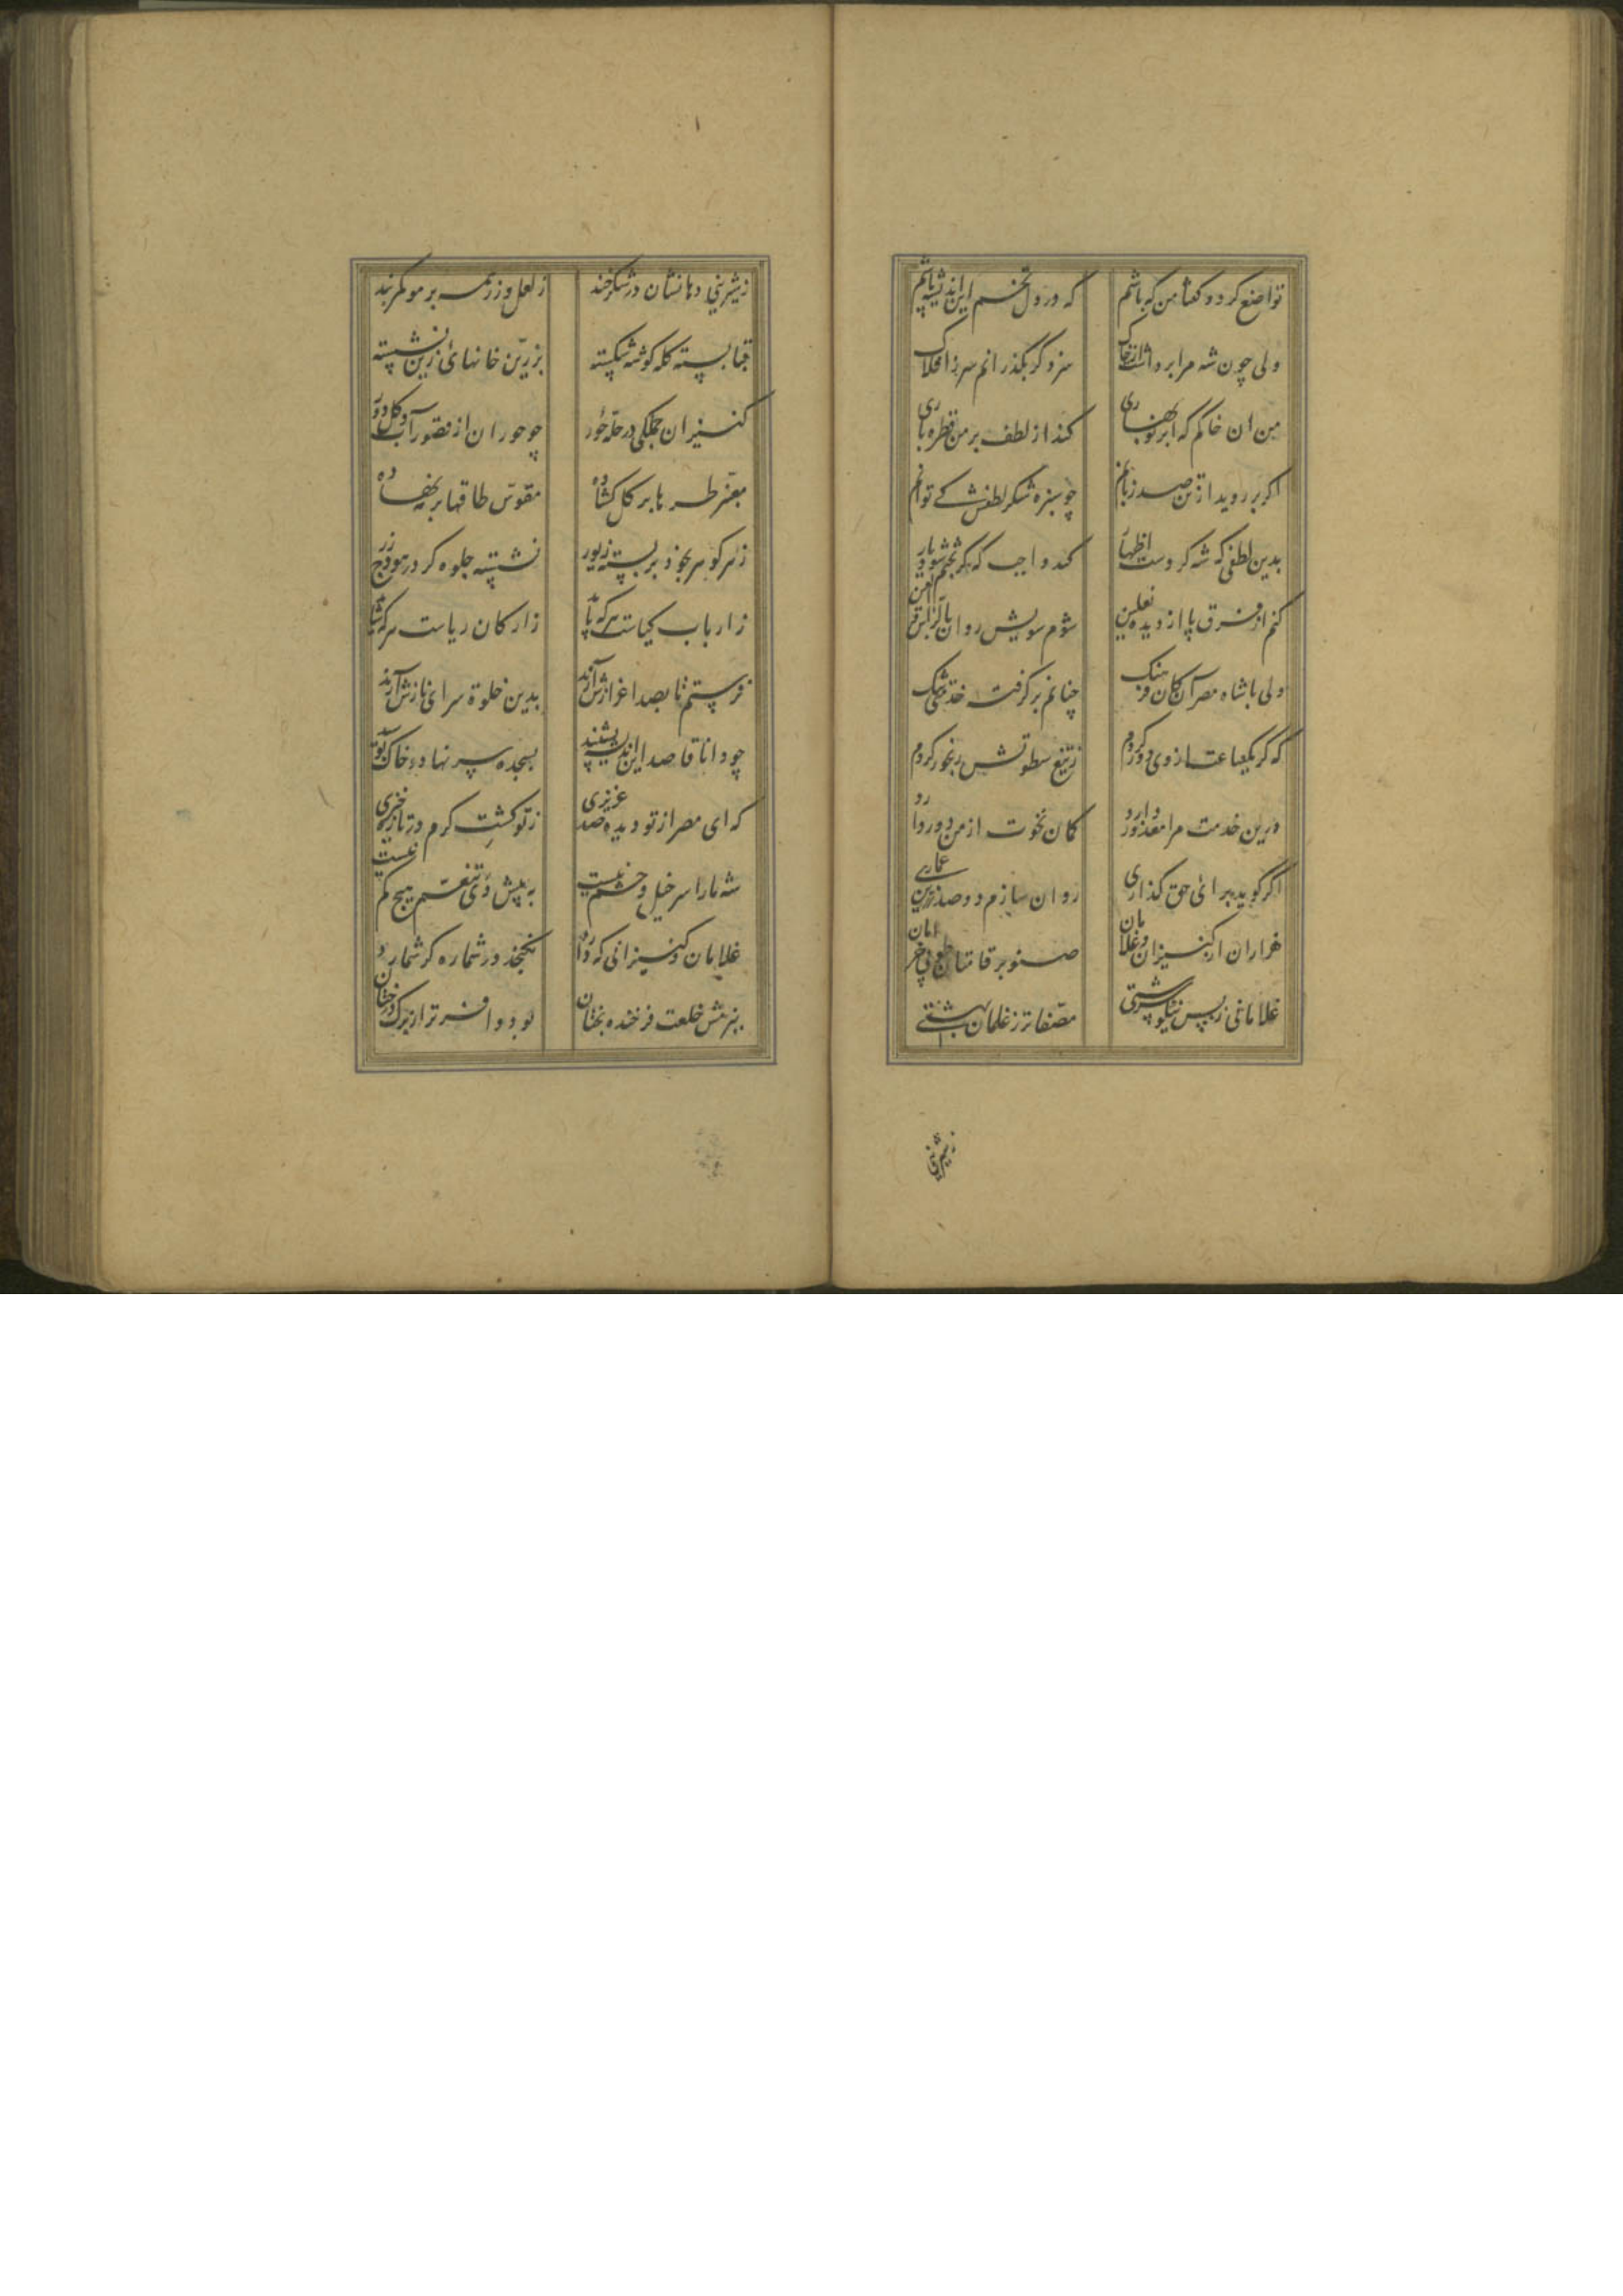 تواضع کرد و کفتا من که باشم
که در دل تخم این اندیشه پاشم
ولی چون شه مرا برداشت از خاک
سزد کر بکذرانم سر ز افلاک
من ان خاکم که ابر نوبهاری
کند از لطف بر من قطره باری
اکر بر روید از تن صد زبانم
چو سبزه شکر لطفش کے توانم
بدین لطفی که شه کردست اظهار
کند واجب که کر بختم شود یار
کنم از فرق پا از دیده نعلین
شوم سویش روان بالراس والعین
ولی با شاه مصر آن کان فرهنک
چنانم بر کرفت خدمتش تنک
که کر یکساعت از وی دور کردم
ز تیغ سطوتش رنجور کردم
درین خدمت مرا معذور دارد
کمان نخوت از من دور دارد
اکر کوید برائ حق کذاری
روان سازم دو صد زرین عماری
هزاران از کنیزان و غلامان
صنوبر قامتان طوبی خرامان
غلامانی ز بس نیکو سرشتی
مصفاتر ز غلمان بهشتے
زشیرینی
زشیرینی دهانشان در شکرخند
ز لعل و زر همه بر مو کمربند
قبا بسته کله کوشه شکسته
بزرین خانهائ زین نشسته
کنیزان جملکی در حلّه حور
چو حوران از قصور آب و کل دور
معنبر طره ها بر کل کشاده
مقوّس طاقها بر مه نهاده
زهر کوهر بخود بر بسته زیور
نشسته جلوه کر در هودج زر
ز ارباب کیاست هر که باید
ز ارکان ریاست هر که شاید
فرستم تا بصد اعزازش آرند
بدین خلوة سرای نازش آرند
چو دانا قاصد این اندیشه بشنید
بسجده سر نهاد و خاک بوسید
که ای مصر از تو دیده صد عزیزی
ز تو کشتِ کرم در تازه خیزی
شه ما را سر خیل و حشم نیست
به پیش وی تنعّم هیچ کم نیست
غلامان و کنیزانی که دارد
نکنجد در شماره کر شمارد
ببزمش خلعت فرخنده بختان
بود وافر تر از برک درختان